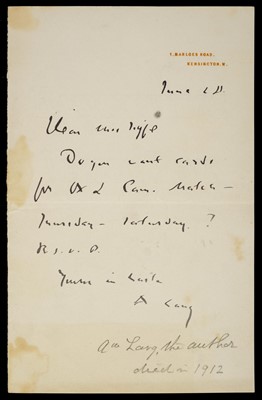 1, MARLOES ROAD,
KENSINGTON. W.
June 28.
Dear Miss
Do you want cards
for Ox & Cam. Match –
Thursday – Saturday ?
R. s. v. P.
Yours in haste
A Lang
Lang, the author
died in 1912